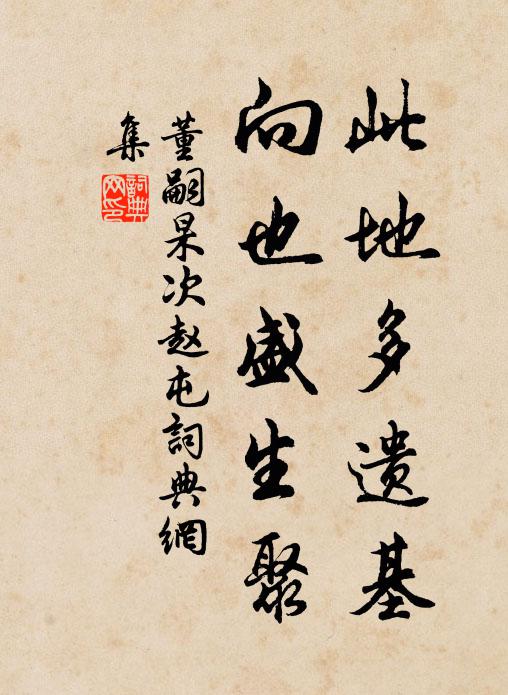 此地多遗基
向也盛生聚
董嗣杲次赵屯詞典網
集
詞典網印